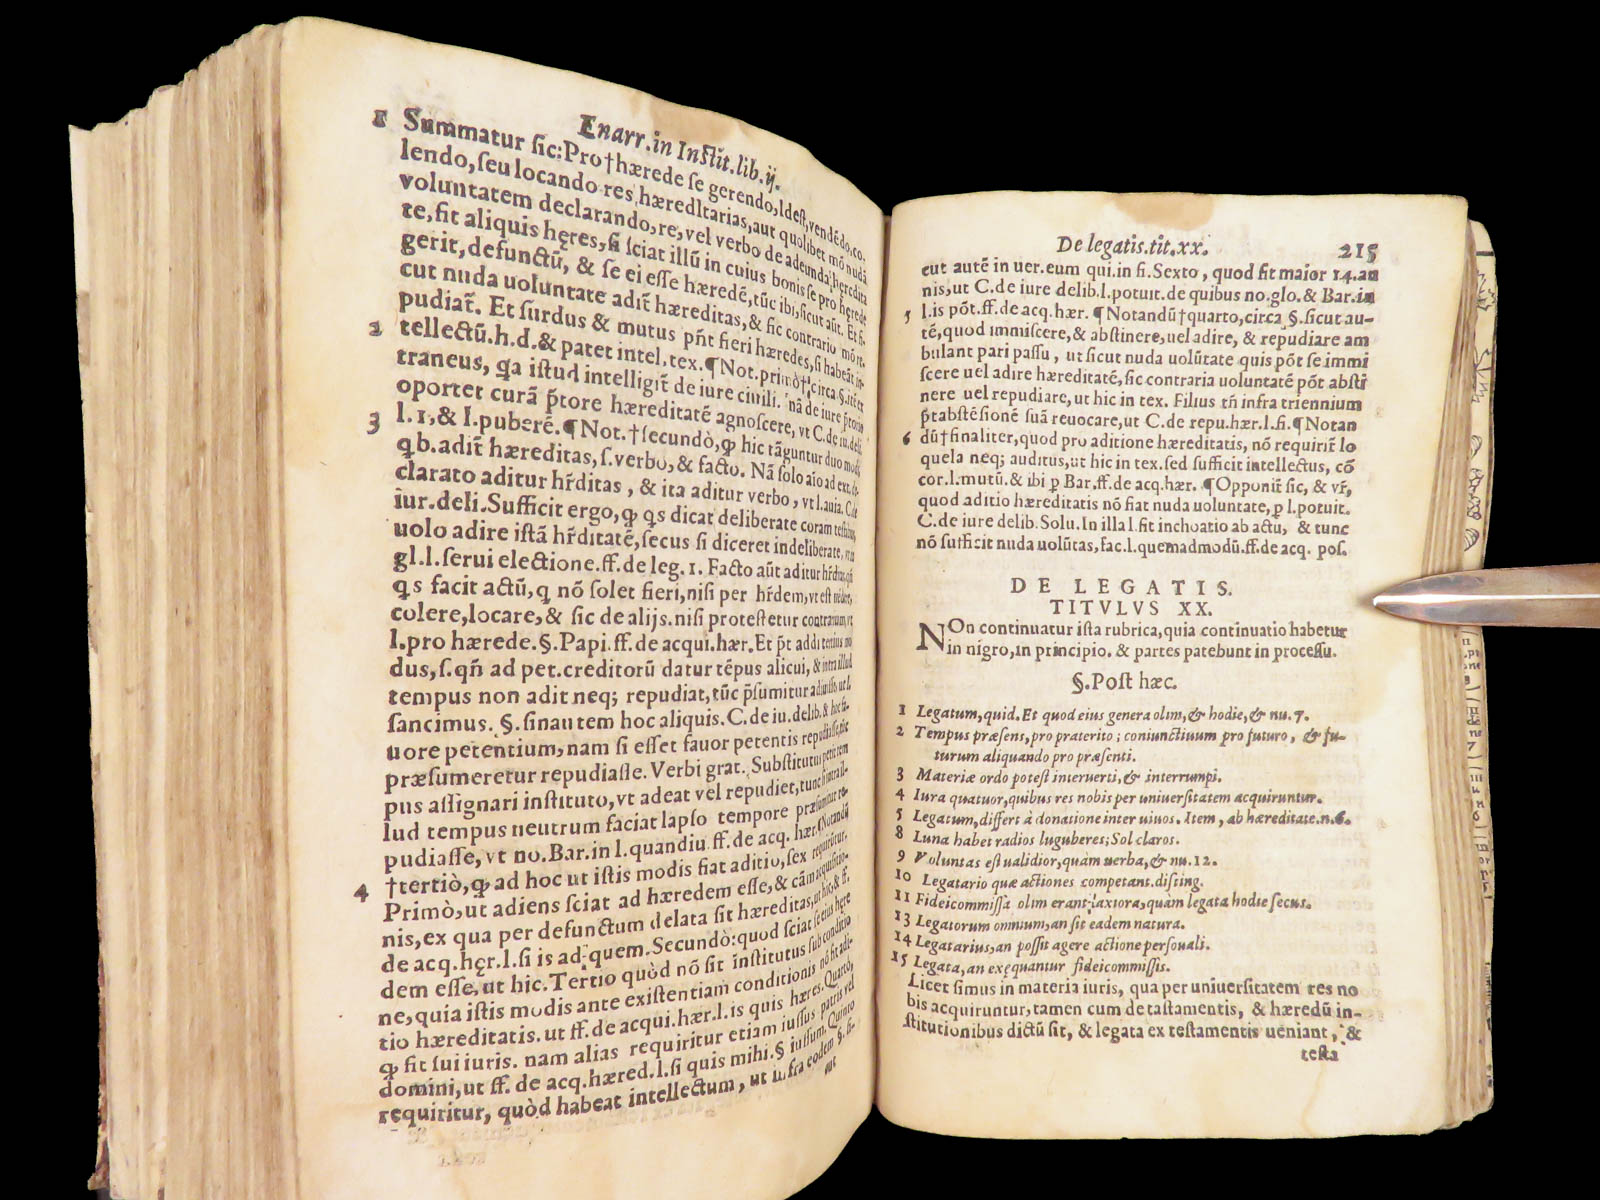 Enarr.in Instit.lib.ij.
1 Summatur sic:Pro†hærede se gerendo,Idest,vendẽdo,co-
lendo,seu locando res hæredItarias,aut quolibet mõ nudã
voluntatem declarando,re,vel verbo de adeunda hęredita
te,fit aliquis hęres,si sciat illũ in cuius bonis se pro hęrede
gerit,defunctũ, & se ei esse hæredẽ,tũc ibi,sicut aũt. Et si-
cut nuda uoluntate adit̃ hæreditas,& sic contrario mõ re-
pudiat̃. Et surdus & mutus pñt fieri hæredes,si habeãt in-
2 tellectũ.h.d.& patet intel.tex.¶Not.primò†circa.§.itẽ ex
traneus, qa istud intelligit̃ de iure ciuili. nã de iure p̃torio
oportet curã p̃tore hæreditatẽ agnoscere, vt C.de iu.deli.
3 l.1,& l.puberẽ.¶Not.†secundò,ꝙ hic tãguntur duo modi
qb.adit̃ hæreditas,s.verbo,& facto. Nã solo aio ad ext. de-
clarato aditur hr̃ditas , & ita aditur verbo , vt l.auia. C.de
iur.deli.Sufficit ergo,ꝙ qs dicat deliberate coram testibus,
uolo adire istã hr̃ditatẽ,secus si diceret indeliberate,
gl.l.serui electione.ff.de leg.1. Facto aũt aditur hr̃ditas,
qs facit actũ,q nõ solet fieri,nisi per hr̃dem,vt est
colere,locare,& sic de alijs.nisi protestetur contrarium,vt
l.pro hærede.§.Papi.ff.de acqui.hær.Et põt addi tertius mo
dus,s.qñ ad pet.creditorũ datur tẽpus alicui, & intra illud
tempus non adit neq; repudiat,tũc p̃sumitur adiuisse,ut l.
sancimus. §.sinautem hoc aliquis.C.de iu.delib.& hoc fa-
uore petentium,nam si esset fauor petentis repudiasse,
præsumeretur repudiasse.Verbi grat. Substitutus petit tem
pus assignari instituto,vt adeat vel repudiet,tunc si intra il-
lud tempus neutrum faciat lapso tempore præsumitur re-
pudiasse,vt no.Bar.in l.quandiu.ff.de acq. hær.¶Notandũ
4 †tertiò,ꝙ ad hoc ut istis modis fiat aditio,sex requirũtur.
Primò,ut adiens sciat ad hæredem esse,& cãm acquisitio-
nis,ex qua per defunctum delata sit hæreditas,ut hic,& ff.
de acq.hęr.l.si is ad quem.Secundò:quod sciat se eius hęre
dem esse,ut hic.Tertio quòd nõ sit institutus sub conditio
ne,quia istis modis ante existentiam conditionis nõ fit adi-
tio hæreditatis.ut ff.de acqui.hær.l.is quis hæres.Quartò,
ꝙ sit sui iuris. nam alias requiritur etiam iussus patris vel
domini,ut ff. de acq.hæred.l.si quis mihi.§ iussum.Quinto
requiritur, quòd habeat intellectum, ut infra eodem §. si-
cut
De legatis.tit.xx. 215
cut autẽ in uer.eum qui.in fi.Sexto, quod sit maior 14.an
nis,ut C.de iure delib.l.potuit.de quibus no.glo.& Bar.in
5 l.is põt.ff.de acq.hær. ¶Notandũ†quarto,circa §.sicut au-
tẽ,quod immiscere,& abstinere,uel adire, & repudiare am
bulant pari passu, ut sicut nuda uolũtate quis põt se immi
scere uel adire hæreditatẽ,sic contraria uoluntatẽ põt absti
nere uel repudiare,ut hic in tex. Filius tñ infra triennium
p̃t abstẽsionẽ suã reuocare,ut C.de repu.hær.l.fi.¶Notan
6 dũ†finaliter,quod pro aditione hæreditatis, nõ requirit̃ lo
quela neq; auditus,ut hic in tex.sed sufficit intellectus, cõ
cor.l.mutũ.& ibi p Bar.ff.de acq.hær. ¶Opponit̃ sic, & vr̃,
quod aditio hæreditatis nõ fiat nuda uoluntate, p l.potuit.
C.de iure delib.Solu.In illa l.fit inchoatio ab actu, & tunc
nõ sufficit nuda uolũtas,fac.l.quemadmodũ.ff.de acq. pos.
DE LEGATIS.
TITVLVS XX.
NOn continuatur ista rubrica,quia continuatio habetur
in nigro,in principio. & partes patebunt in processu.
§.Post hæc.
1 Legatum,quid.Et quod eius genera olim,& hodie,& nu.7.
2 Tempus præsens,pro præterito ; coniunctiuum pro futuro , & fu-
turum aliquando pro præsenti.
3 Materiæ ordo potest interuerti,& interrumpi.
4 Iura quatuor,quibus res nobis per uniuersitatem acquiruntur.
5 Legatum,differt à donatione inter uiuos. Item, ab hæreditate.n.6.
8 Luna habet radios lugubres; Sol claros.
9 Voluntas est ualidior,quàm uerba,& nu.12.
10 Legatario quæ actiones competant.disting.
11 Fideicommissa olim erant laxiora,quàm legata hodie secus.
13 Legatorum omnium,an sit eadem natura.
14 Legatarius,an possit agere actione personali.
15 Legata,an exęquantur fideicommissis.
Licet simus in materia iuris, qua per uniuersitatem res no
bis acquiruntur,tamen cum de tastamentis, & hæredũ in-
stitutionibus dictũ sit, & legata ex testamentis ueniant, &
testa